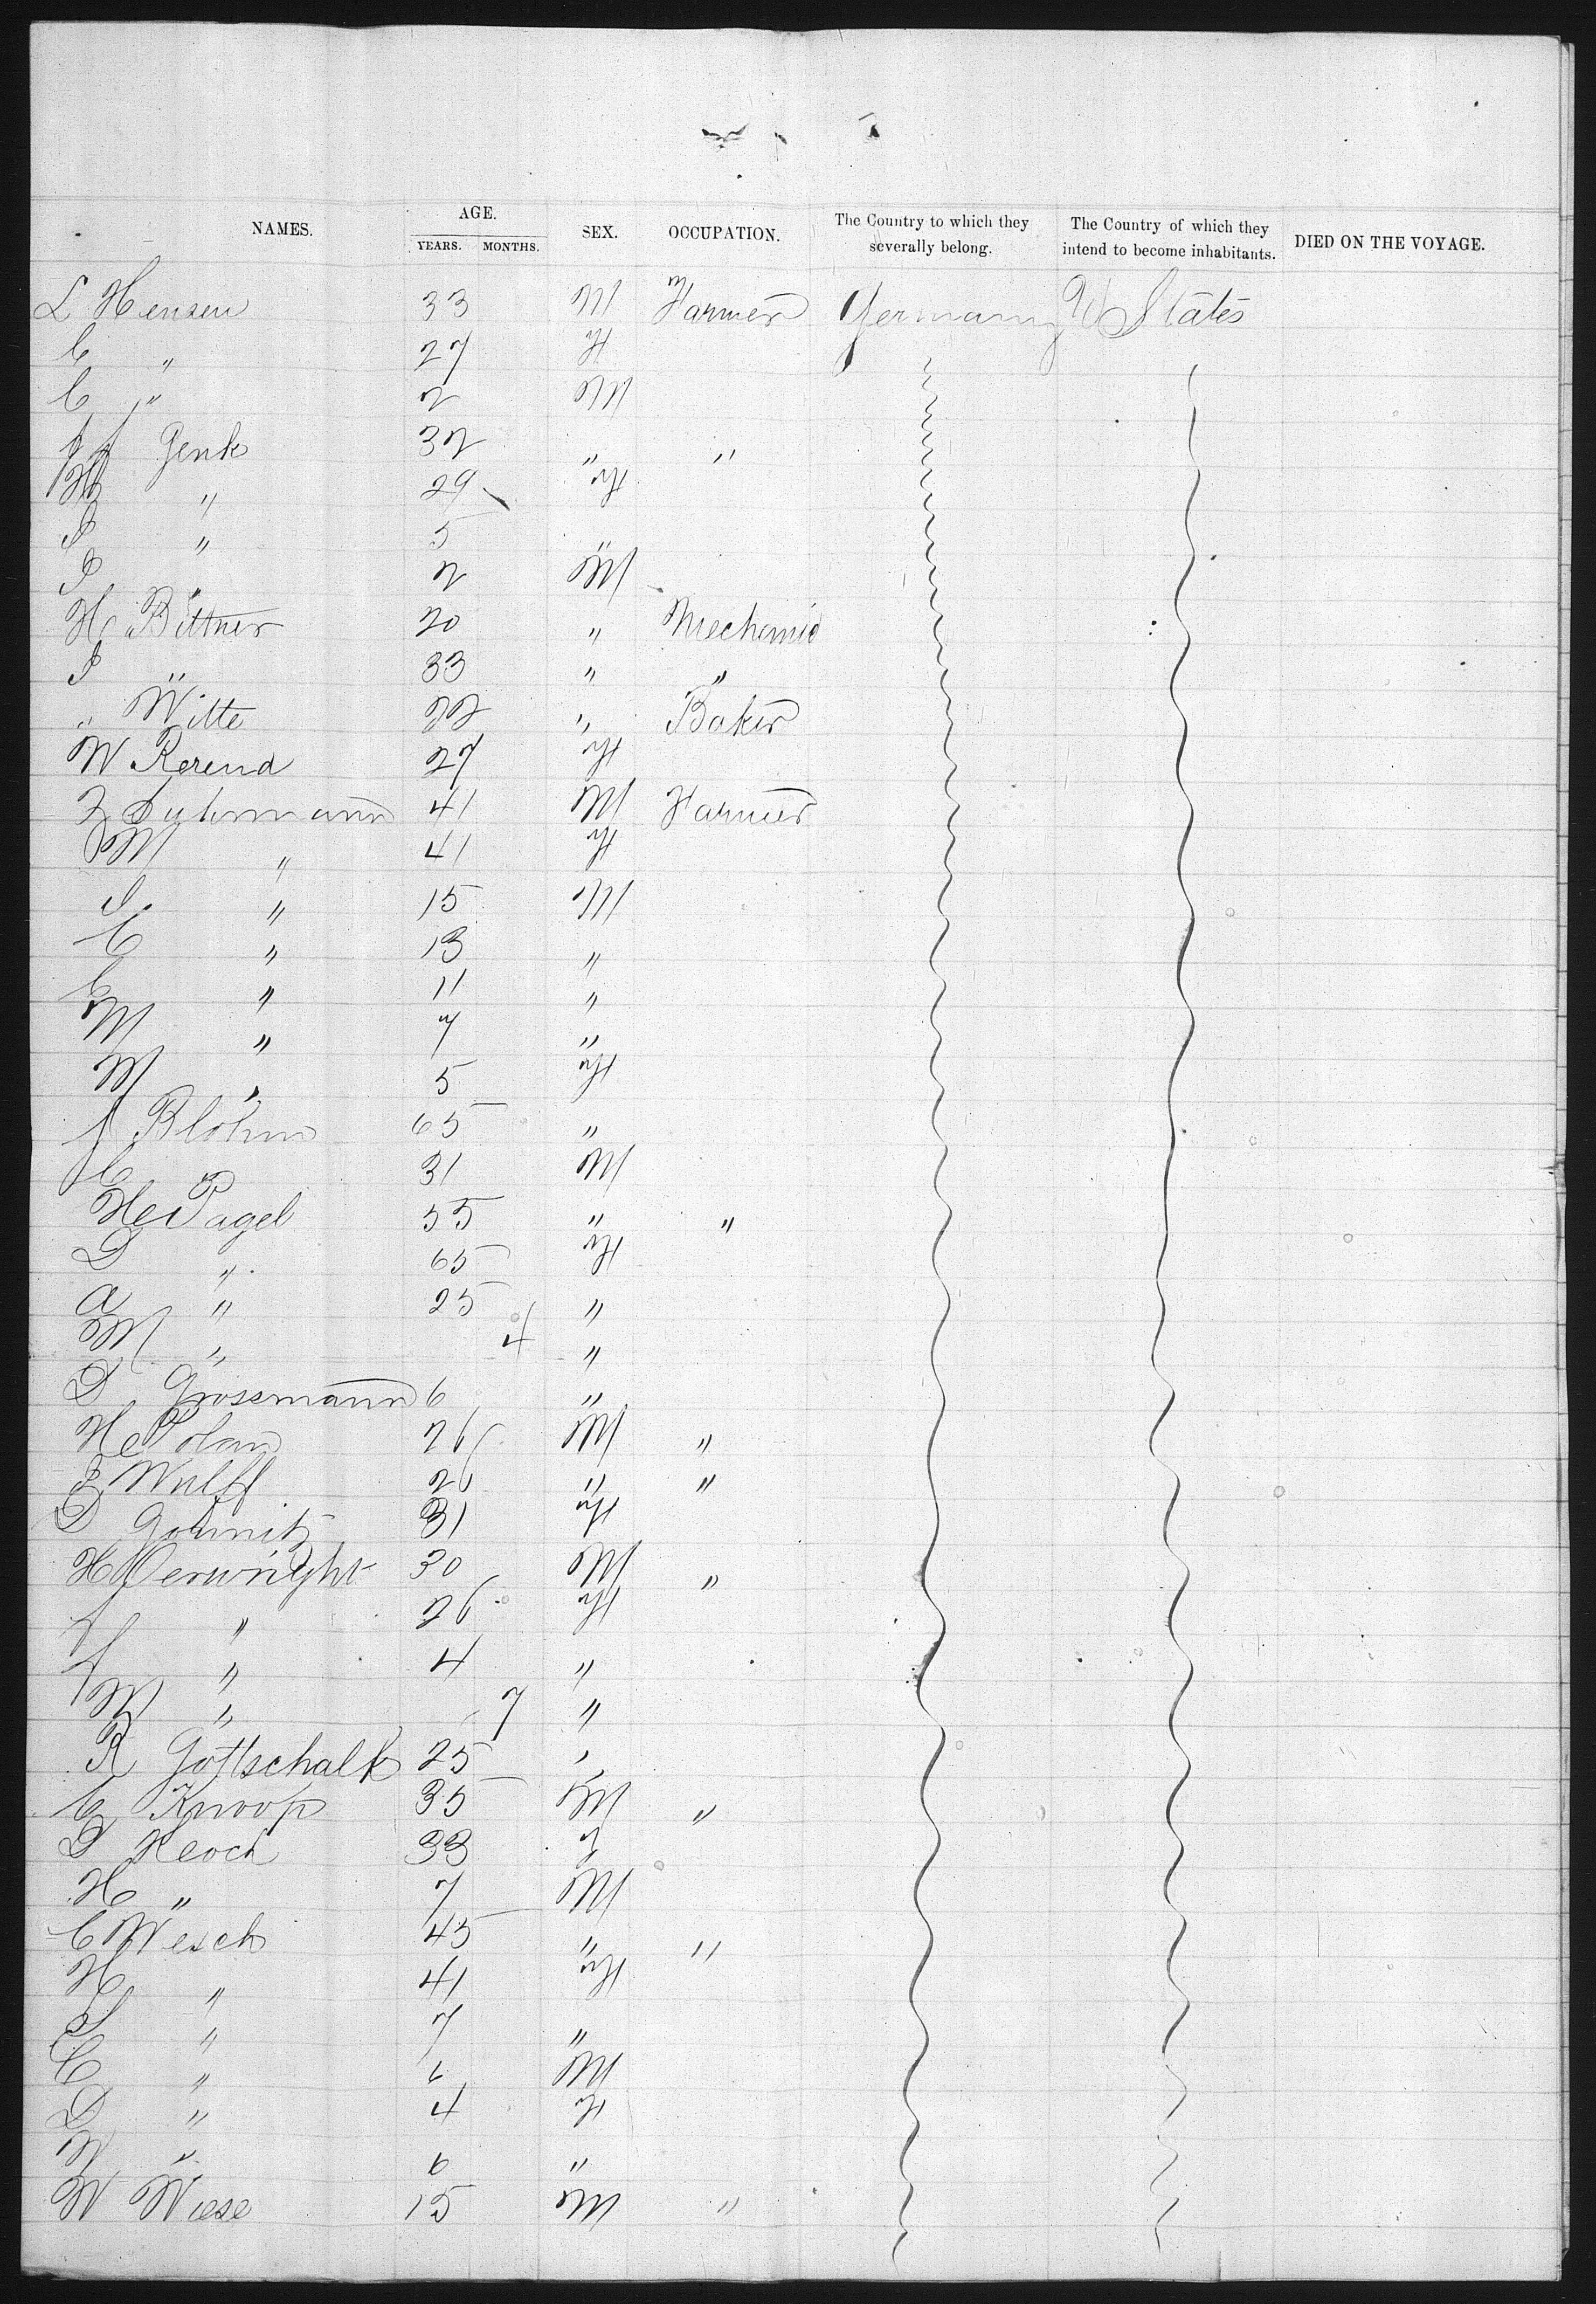 NAMES. AGE. SEX. OCCUPATION. The Country to which they severally belong. The Country of which they intend to become inhabitants. DIED ON THE VOYAGE.
YEARS. MONTHS.
L Hensen 33 M Farmer Germany U States
C " 27 F
C " 2 M
J Genk 32 " "
W " 29 F
S " 5 "
P " 2 M
H Bittner 20 " Mechanic
S " 33 " "
" Witte 22 " Baker
W Rerend 27 F
Z Luhrmann 41 M Farmer
M " 41 F
S " 15 M
C " 13 "
C " 11 "
M " 7 "
M " 5 F
J Blohm 65 "
C 31 M
He Pagel 55 " "
D " 65 F
A " 25 "
M " 4 "
D Grossmann 6 "
He Polan 26 M "
Wulff 26 " "
D 31 F
H 30 M "
J " 26 F
J " 4 "
M " 7 "
R Gottschalk 25 "
C Knoop 35 M "
D Keoch 33 F
H " 7 M
C Wesch 45 " "
H " 41 F
S " 7 "
C " 6 M
D " 4 F
W " 6 "
W Wiese 15 M "